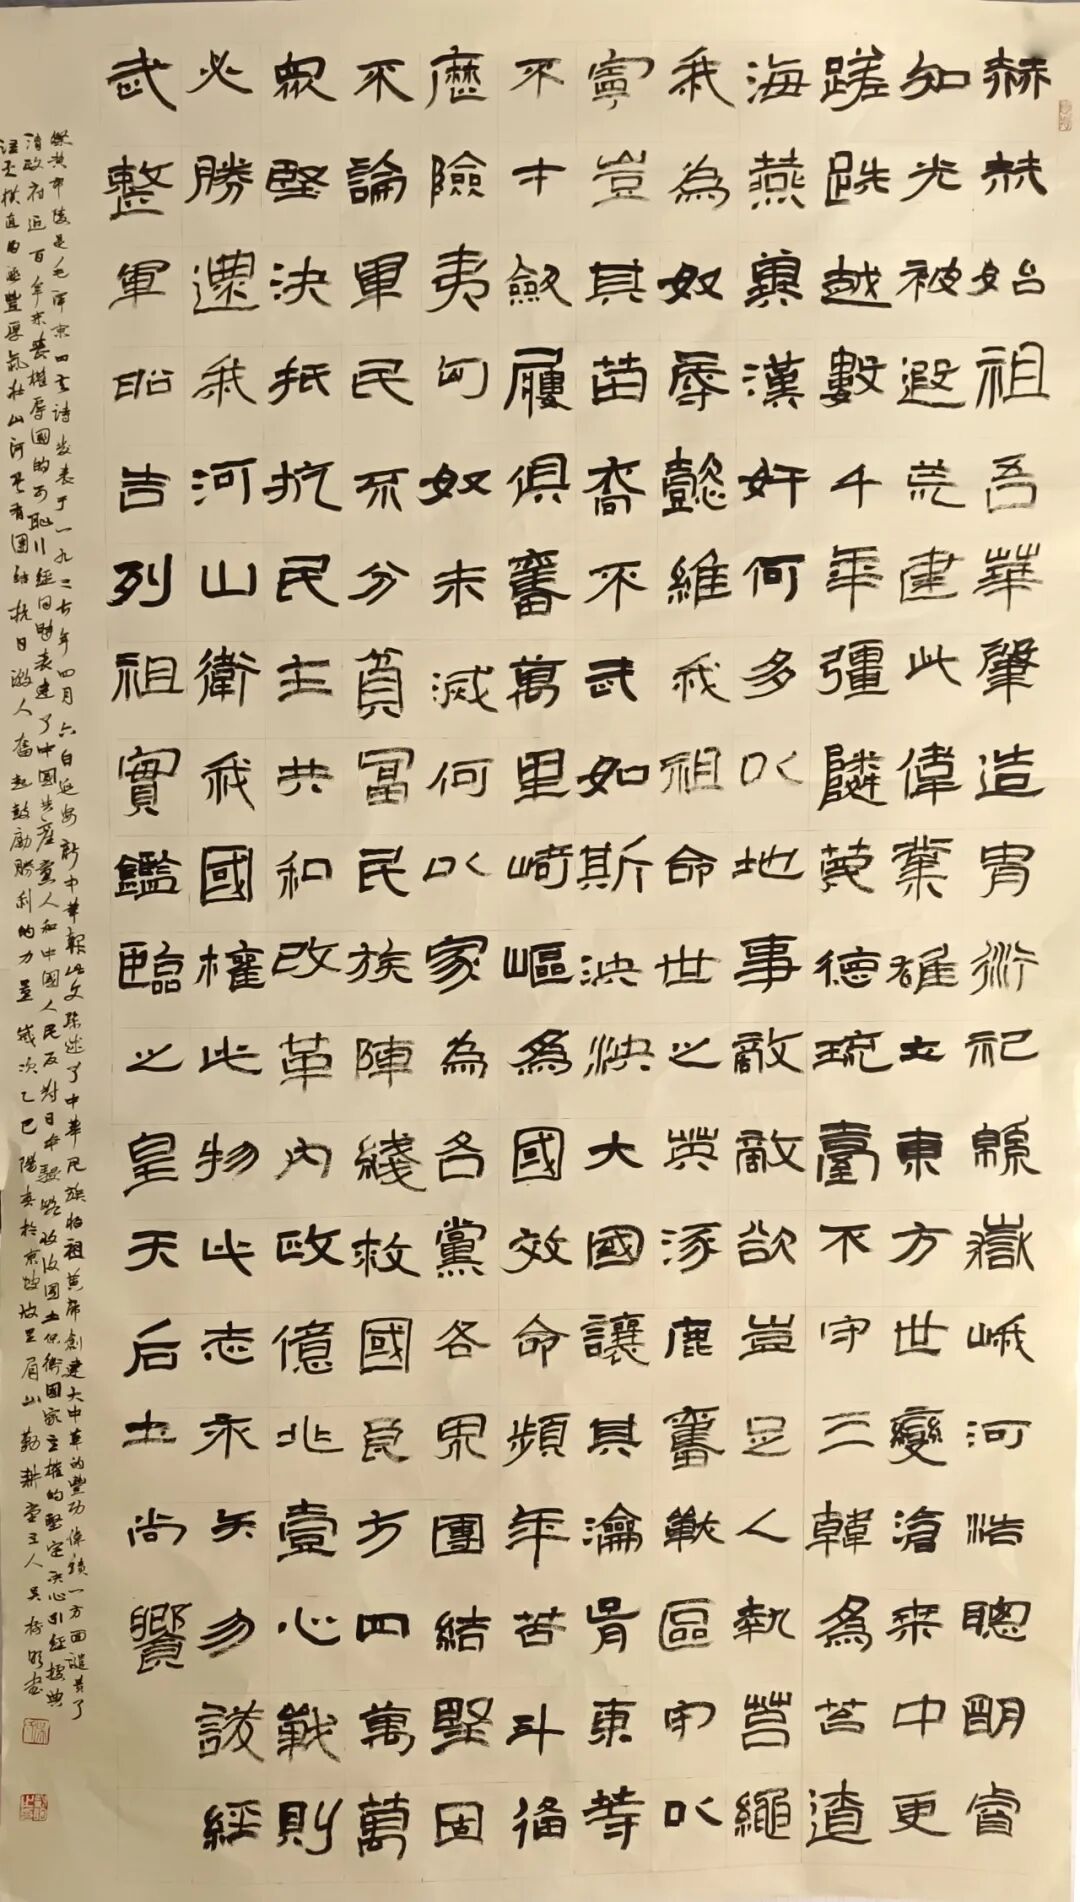 赫赫始祖吾華肇造胄衍祀綿嶽峨河浩聰明睿
知光被遐荒建此偉業雄立東方世變滄桒中更
蹉跌越數千年彊鄰蔑德琉臺不守三韓為墟遼
海燕冀漢奸何多以地事敵敵欲豈足人執笞繩
我為奴辱懿維我祖命世之英涿鹿奮戰區宇以
寧豈其苗裔不武如斯泱泱大國讓其淪胥東等
不才劍屨俱奮萬里崎嶇為國效命頻年苦斗備
歷險夷匈奴未滅何以家為各黨各界團結堅固
不論軍民不分貧富民族陣綫救國良方四萬萬
眾堅決抵抗民主共和改革內政億兆壹心戰則
必勝還我河山衛我國權此物此志永矢勿諼經
武整軍昭告列祖實鑑臨之皇天后土尚饗
祭黄帝陵是毛澤東四言詩发表于一九三七年四月六日延安新中華報此文陈述了中華民族始祖黄帝創建大中華的豐功偉績一方面譴責了
清政府近百年来喪權辱國的可恥行径同時表達了中國共產黨人和中國人民反對日本收復國土保衛國家主權的堅定决心引經據典
横直曲豐厚氣壮山河具有團結抗日激人奮起鼓励勝利的力量 歲次乙巳陽春於京故里眉山勤耕堂主人吴明書